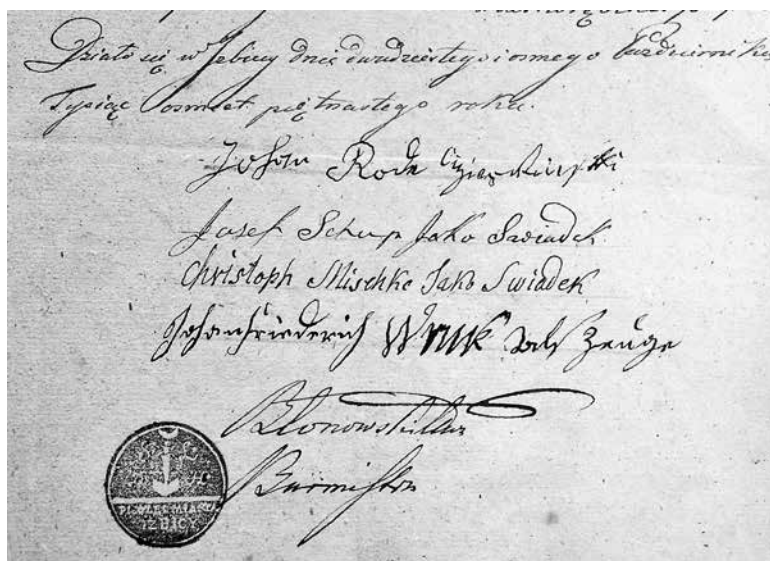 Działo się w Izbicy dnia dwudziestego i osmego Października
Tysiąc osmset piętnastego roku.
Johan Rode
Josef Schup Jako Swiadek
Christoph Mischke Jako Swiadek
Johan Friederich Wruk als Zeuge
Błonowski
Burmistrz
PIECZĘĆ MIASTA
IZBICY